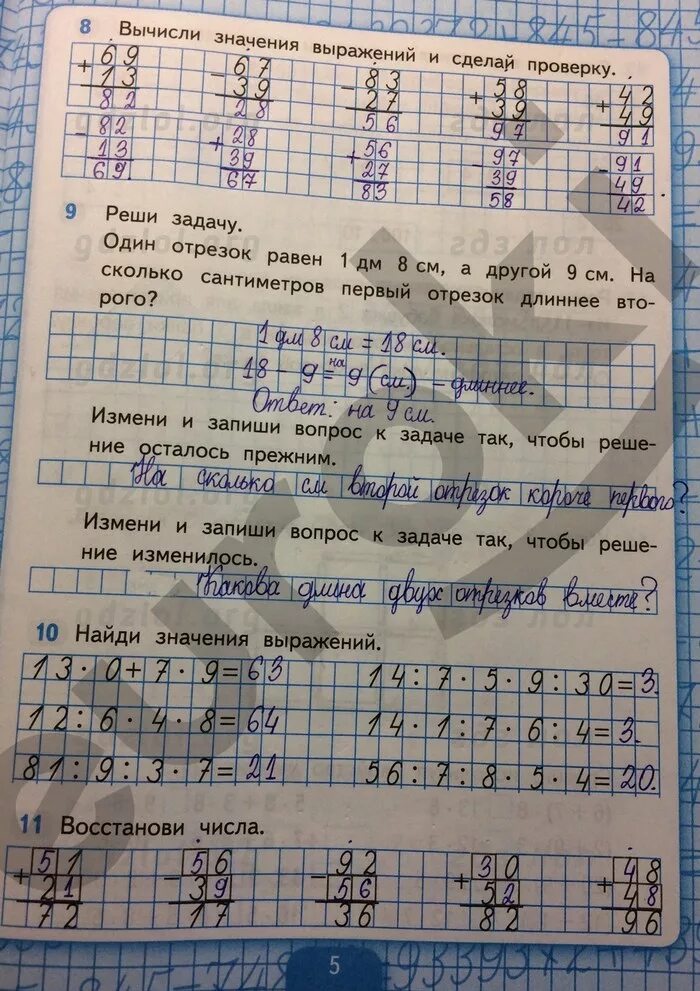 8 Вычисли значения выражений и сделай проверку.
+69 −67 −83 +58 +42
13 39 27 39 49
82 28 56 97 91
−82 +28 +56 −97 −91
13 39 27 39 49
69 67 83 58 42
9 Реши задачу.
Один отрезок равен 1 дм 8 см, а другой 9 см. На
сколько сантиметров первый отрезок длиннее вто-
рого?
1 дм 8 см = 18 см.
18 − 9 = на 9 (см.) − длиннее.
Ответ: на 9 см.
Измени и запиши вопрос к задаче так, чтобы реше-
ние осталось прежним.
На сколько см второй отрезок короче первого?
Измени и запиши вопрос к задаче так, чтобы реше-
ние изменилось.
Какова длина двух отрезков вместе?
10 Найди значения выражений.
13 · 0 + 7 · 9 = 63 14 : 7 · 5 · 9 : 30 = 3.
12 : 6 · 4 · 8 = 64 14 · 1 : 7 · 6 : 4 = 3.
81 : 9 : 3 · 7 = 21 56 : 7 : 8 · 5 · 4 = 20.
11 Восстанови числа.
+51 −56 −92 +30 +48
21 39 56 52 48
72 17 36 82 96
5
euroki